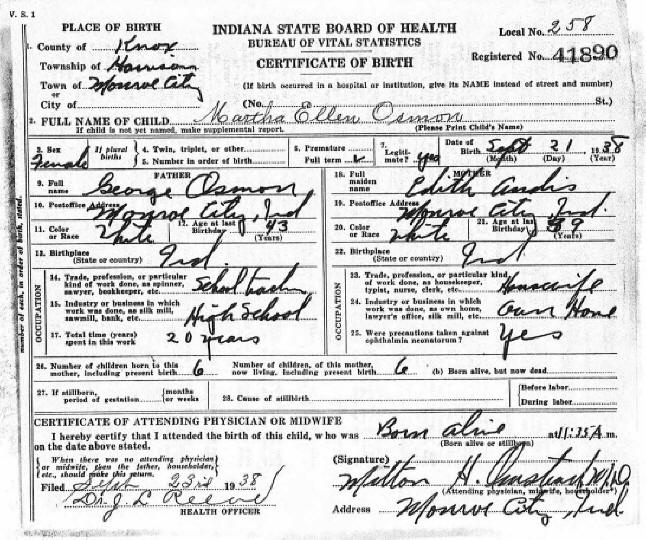 V. S. 1
PLACE OF BIRTH
INDIANA STATE BOARD OF HEALTH
Local No. 258
1. County of Knox
BUREAU OF VITAL STATISTICS
Registered No. 41890
Township of Harrison
CERTIFICATE OF BIRTH
Town of Monroe City
or
(If birth occurred in a hospital or institution, give its NAME instead of street and number)
City of (No. St.)
2. FULL NAME OF CHILD Martha Ellen Osmon
If child is not yet named, make supplemental report. (Please Print Child's Name)
3. Sex Female
If plural births
4. Twin, triplet, or other
5. Number in order of birth
6. Premature
Full term
7. Legitimate? yes
Date of Birth Sept 21 1938
(Month) (Day) (Year)
FATHER
9. Full name George Osmon
10. Postoffice Address Monroe City, Ind
11. Color or Race White
12. Age at last Birthday 43 (Years)
13. Birthplace (State or country) Ind.
OCCUPATION
14. Trade, profession, or particular kind of work done, as spinner, sawyer, bookkeeper, etc. School teacher
15. Industry or business in which work was done, as silk mill, sawmill, bank, etc. High School
17. Total time (years) spent in this work 20 years
MOTHER
18. Full maiden name Edith Andis
19. Postoffice Address Monroe City Ind.
20. Color or Race White
21. Age at last Birthday 39 (Years)
22. Birthplace (State or country) Ind
OCCUPATION
23. Trade, profession, or particular kind of work done, as housekeeper, typist, nurse, clerk, etc. Housewife
24. Industry or business in which work was done, as own home, lawyer's office, silk mill, etc. Own Home
25. Were precautions taken against ophthalmia neonatorum? Yes
26. Number of children born to this mother, including present birth 6
Number of children, of this mother, now living, including present birth 6
(b) Born alive, but now dead
27. If stillborn, period of gestation months or weeks
28. Cause of stillbirth
Before labor
During labor
CERTIFICATE OF ATTENDING PHYSICIAN OR MIDWIFE
I hereby certify that I attended the birth of this child, who was Born alive at 11:35 A m.
on the date above stated. (Born alive or stillborn)
When there was no attending physician or midwife, then the father, householder, etc., should make this return.
(Signature) Milton H. M.D.
(Attending physician, midwife, householder)
Filed Sept 23rd 1938
Dr. J L Reeve
HEALTH OFFICER
Address Monroe City, Ind.
number of each, in order of birth, stated.